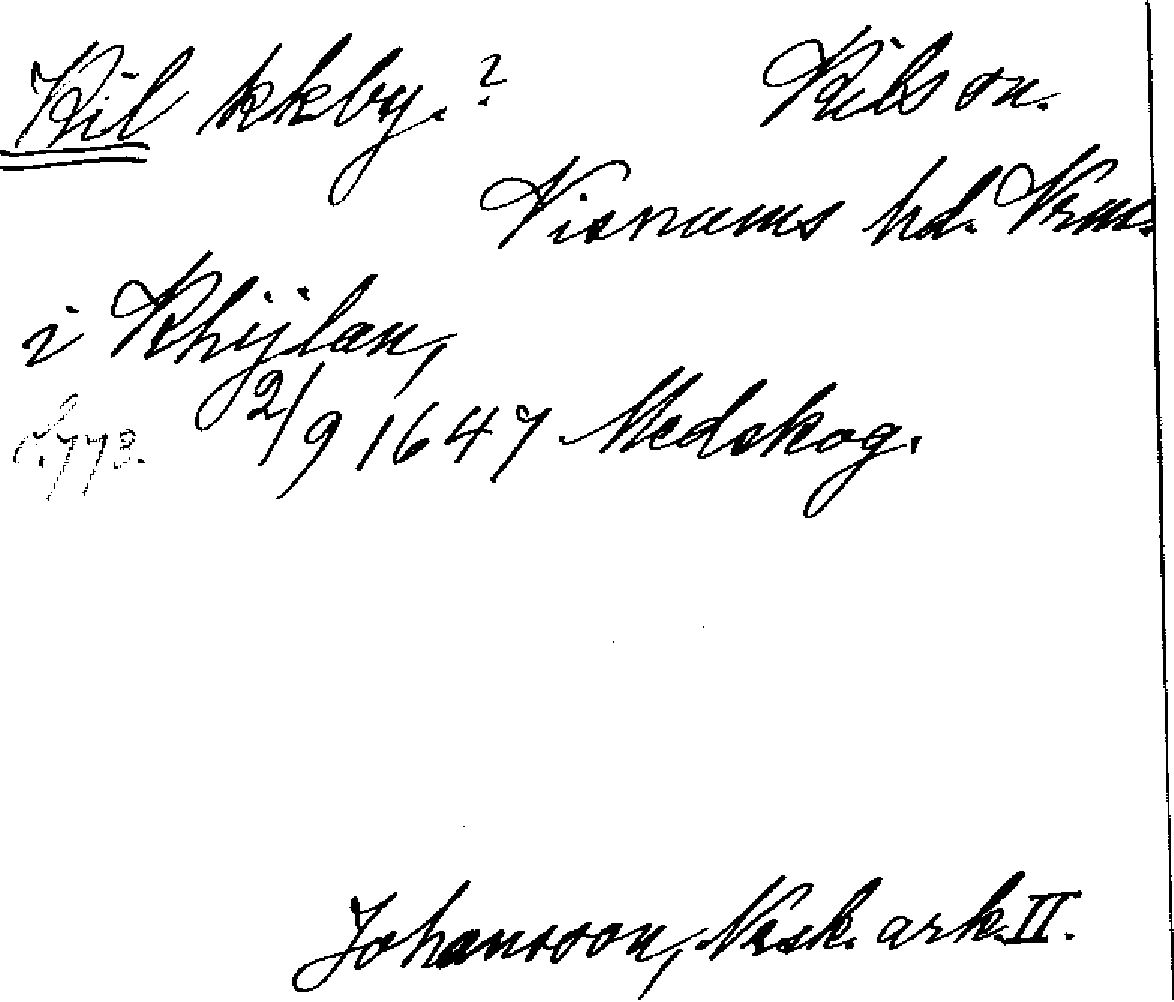 Kil kkby.? Kils sn.
Visnums hd. Vrml.
i Khijlan,
2/9 1647 Medskog.
Johansson, Nesk. ark. II.